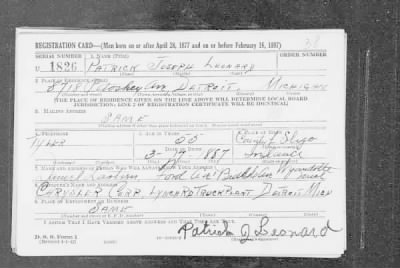 REGISTRATION CARD—(Men born on or after April 28, 1877 and on or before February 16, 1897)
SERIAL NUMBER 1. NAME (Print)
U 1826 PATRICK JOSEPH LEONARD
2. PLACE OF RESIDENCE (Print)
8718 Petoskey Av. DETROIT MICHIGAN
[THE PLACE OF RESIDENCE GIVEN ON THE LINE ABOVE WILL DETERMINE LOCAL BOARD
JURISDICTION; LINE 2 OF REGISTRATION CERTIFICATE WILL BE IDENTICAL]
3. MAILING ADDRESS
SAME
4. TELEPHONE 5. AGE IN YEARS 6. PLACE OF BIRTH
TYLER 55 County Sligo
DATE OF BIRTH
3- 17 1887 Ireland
7. NAME AND ADDRESS OF PERSON WHO WILL ALWAYS KNOW YOUR ADDRESS
Ford Wyandotte
8. EMPLOYER'S NAME AND ADDRESS
CHRYSLER CORP LYNCH RD TRUCK PLANT DETROIT MICH
9. PLACE OF EMPLOYMENT OR BUSINESS
SAME
I AFFIRM THAT I HAVE VERIFIED ABOVE ANSWERS AND THAT THEY ARE TRUE.
D. S. S. Form 1
(Revised 4-1-42)
Patrick J. Leonard